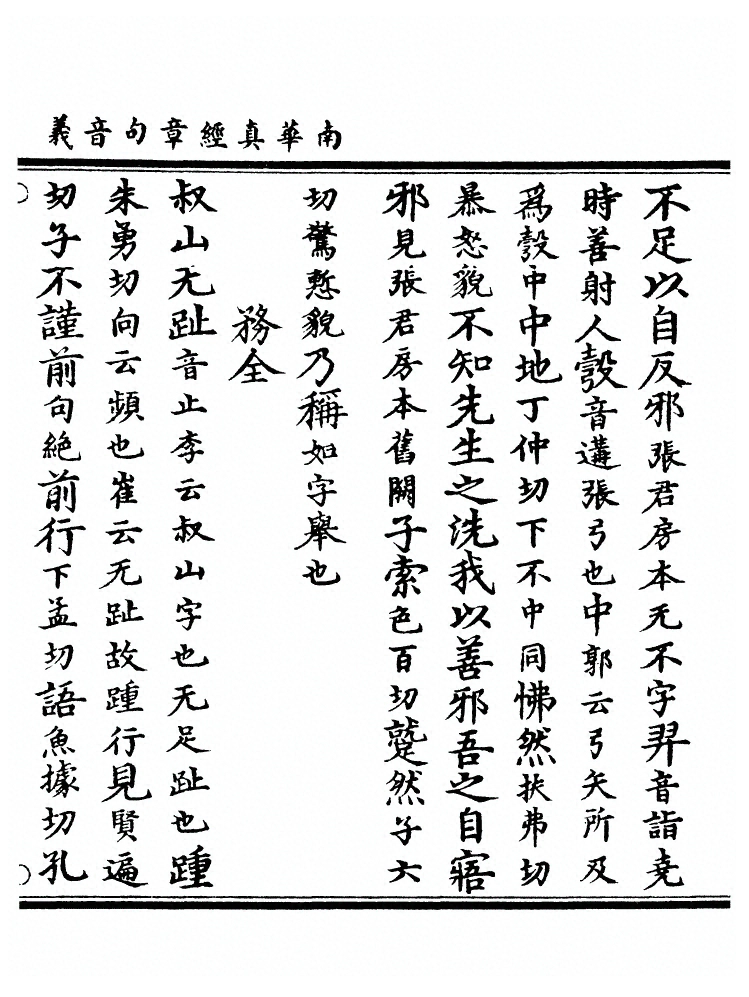 南華真經章句音義
不足以自反邪張君房本无不字羿音詣堯
時善射人彀音遘張弓也中郭云弓矢所及
為彀中中地丁仲切下不中同怫然扶弗切
暴怒貌不知先生之洗我以善邪吾之自寤
邪見張君房本舊闕子索色百切蹵然子六
切驚慙貌乃稱如字舉也
務全
叔山无趾音止李云叔山字也无足趾也踵
朱勇切向云頻也崔云无趾故踵行見賢遍
切子不謹前句絶前行下孟切語魚據切孔